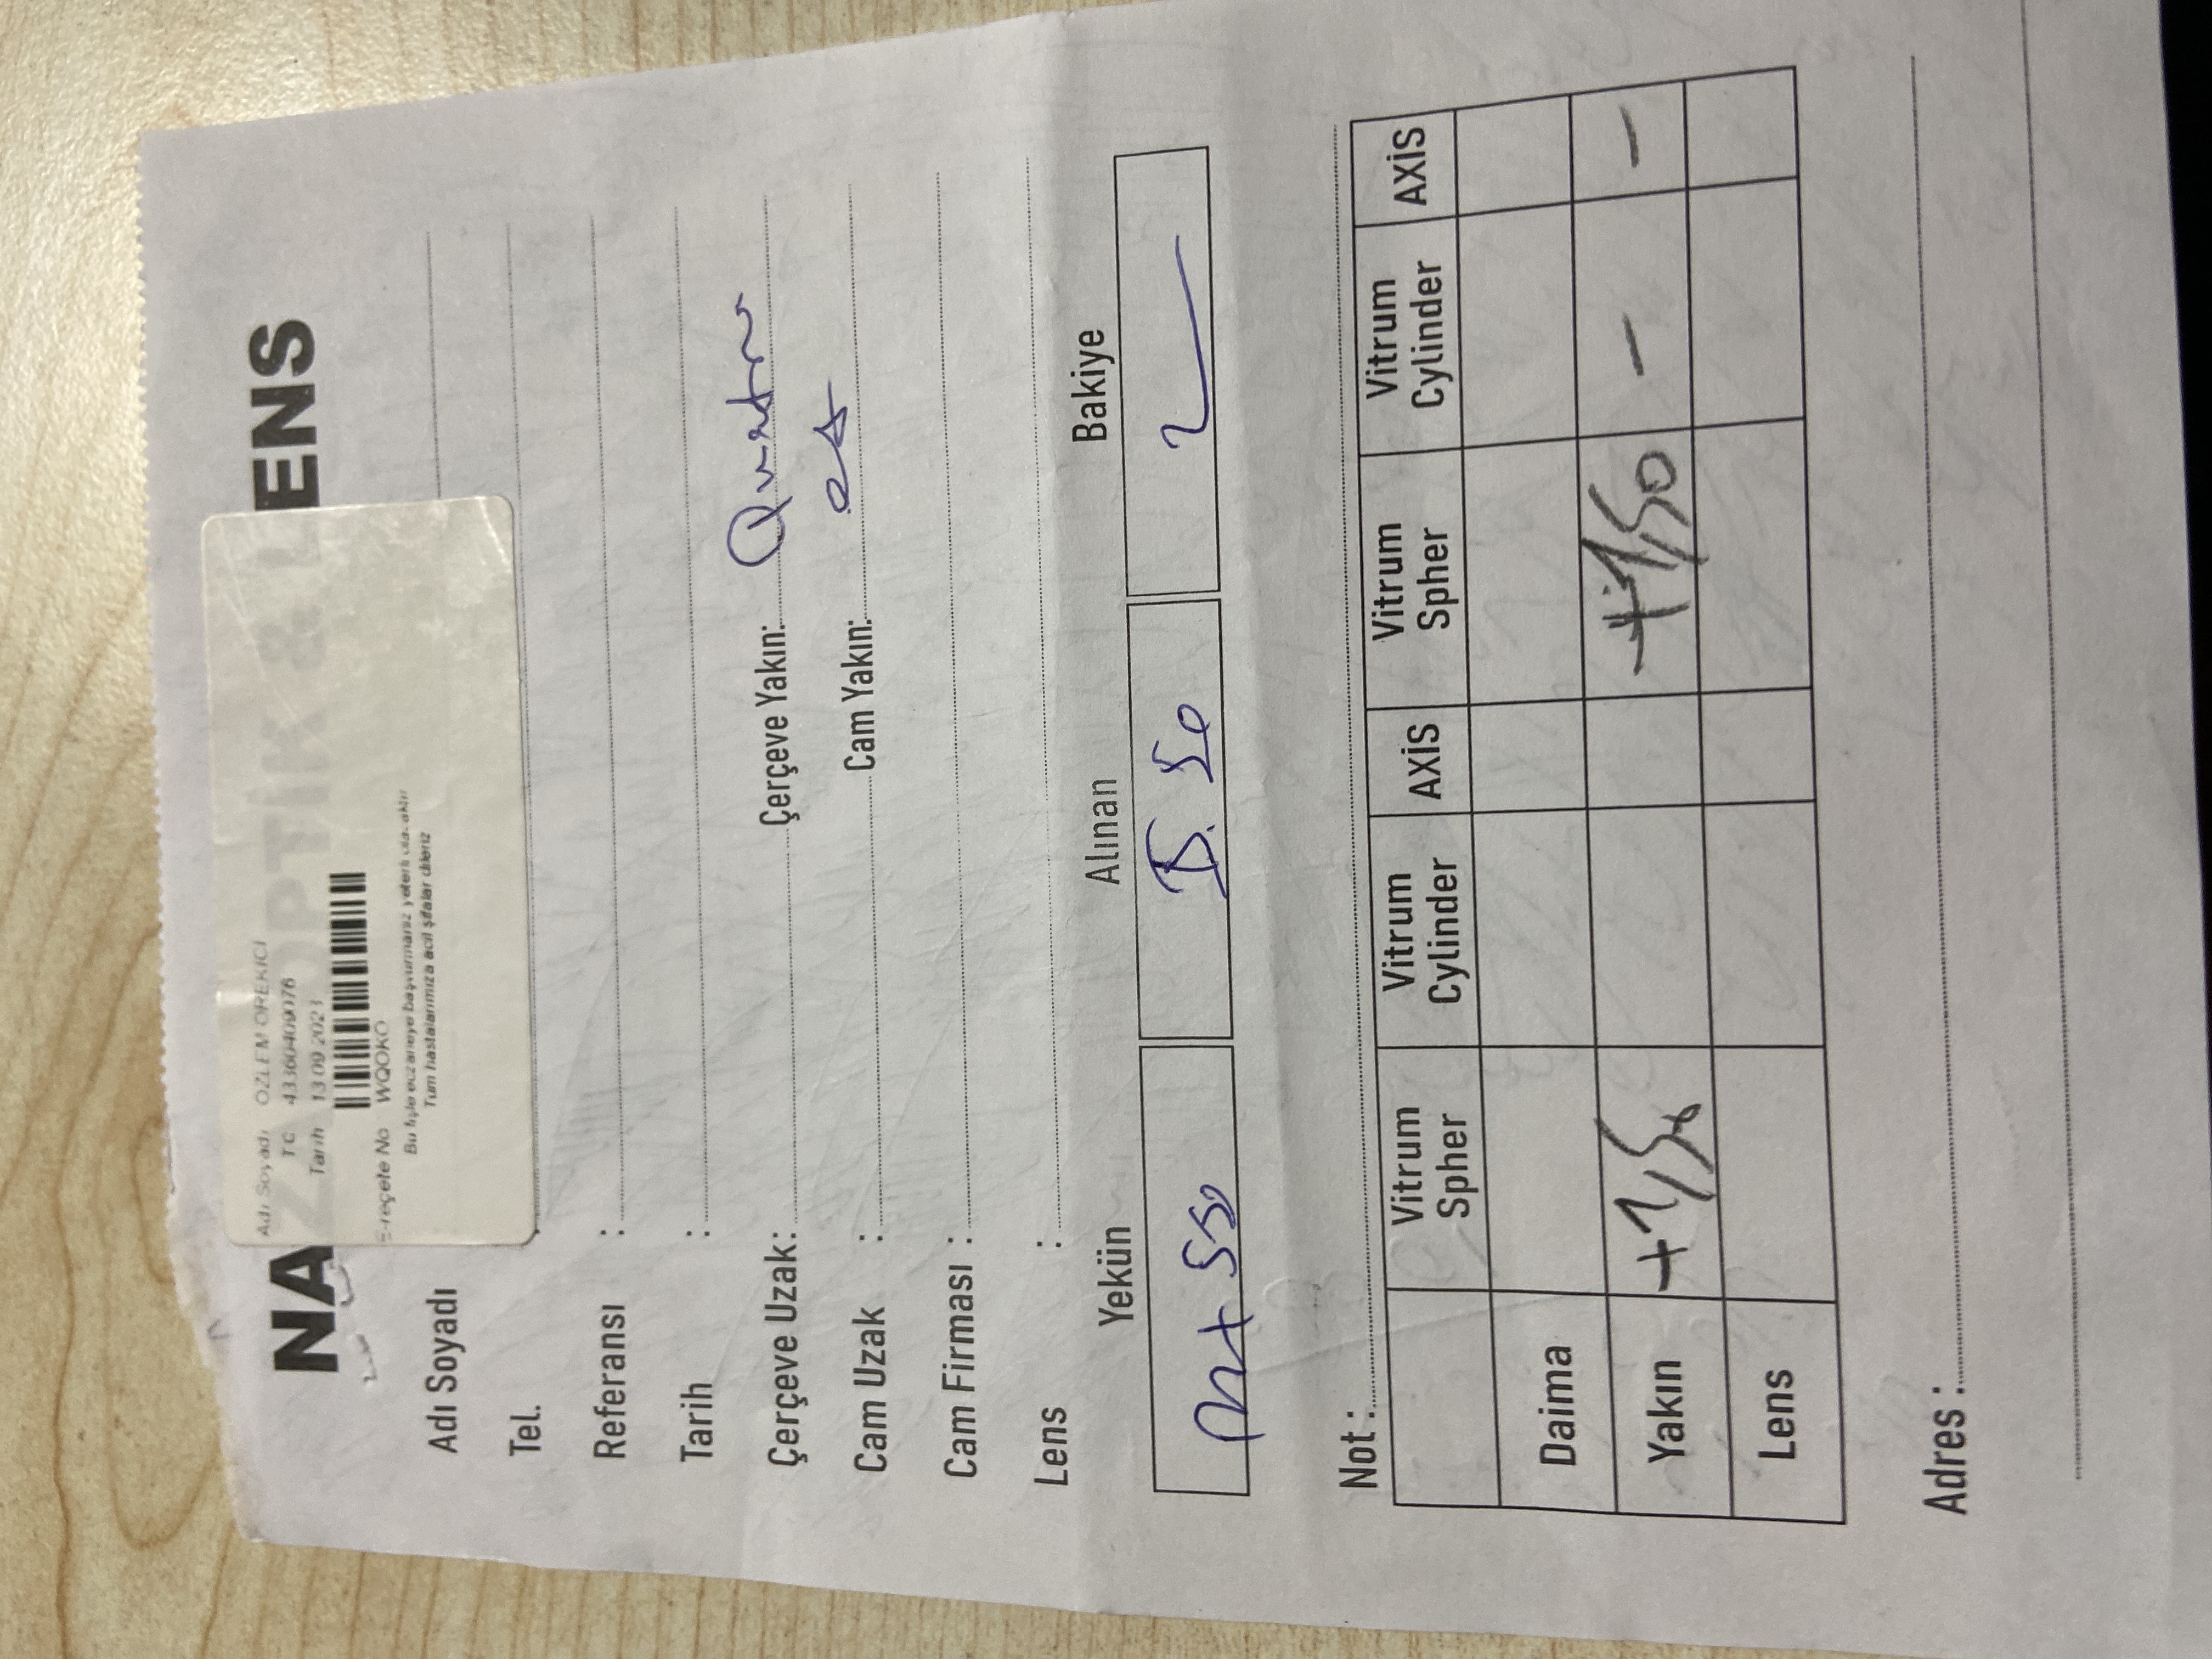 NAZ OPTİK & LENS
Adı Soyadı ÖZLEM ÖREKİCİ
TC 43360409076
Tarih 13.09.2023
E-reçete No WQOKO
Bu fişle eczaneye başvurmanız yeterli olacaktır
Tüm hastalarımıza acil şifalar dileriz
Adı Soyadı
Tel.
Referansı :
Tarih :
Çerçeve Uzak: Çerçeve Yakın:
Cam Uzak : Cam Yakın:
Cam Firması :
Lens :
Yekün Alınan Bakiye
550 50
Not :
Vitrum Spher Vitrum Cylinder AXİS Vitrum Spher Vitrum Cylinder AXİS
Daima
Yakın +1,50 +1,50 - -
Lens
Adres :